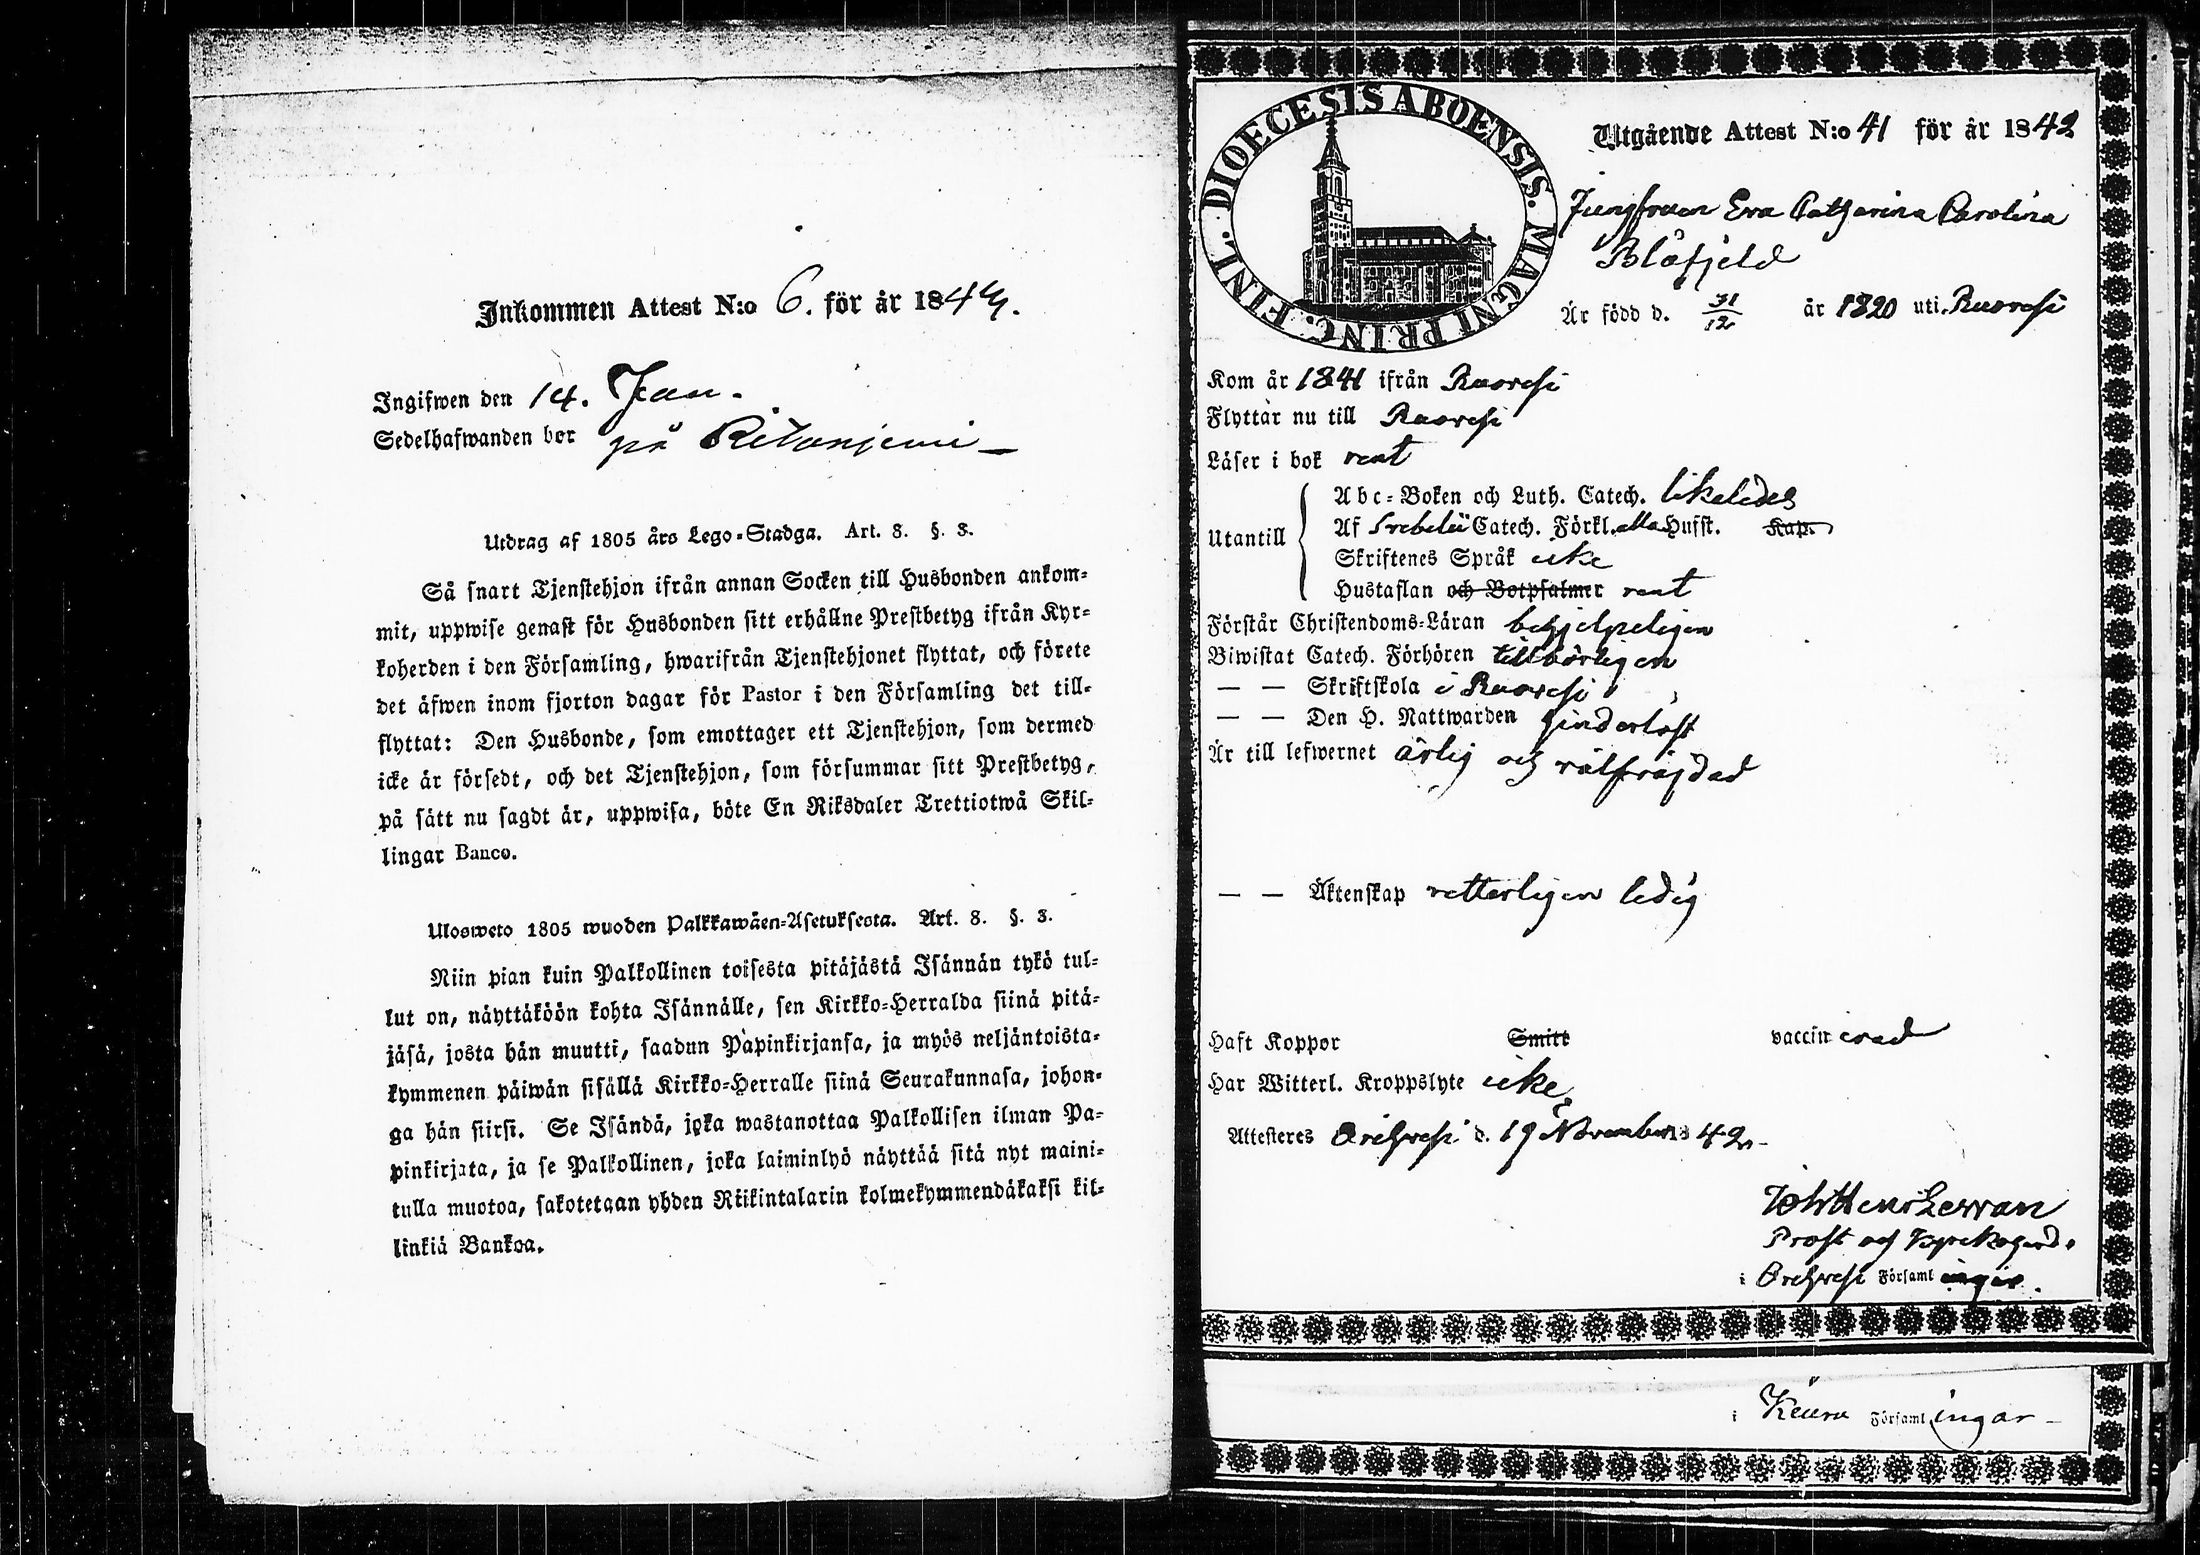 Inkommen Attest N:o 6. för år 1844.
Ingifwen den 14. Jan.
Sedelhafwanden bor på Ritoniemi
Utdrag af 1805 års Lego-Stadga. Art. 8. §. 3.
Så snart Tjenstehjon ifrån annan Socken till Husbonden ankom-
mit, uppwise genast för Husbonden sitt erhållne Prestbetyg ifrån Kyr-
koherden i den Församling, hwarifrån Tjenstehjonet flyttat, och förete
det äfwen inom fjorton dagar för Pastor i den Församling det till-
flyttat: Den Husbonde, som emottager ett Tjenstehjon, som dermed
icke är försedt, och det Tjenstehjon, som försummar sitt Prestbetyg,
på sätt nu sagdt är, uppwisa, böte En Riksdaler Trettiotwå Skil-
lingar Banco.
Ulosweto 1805 wuoden Palkkawäen-Asetuksesta. Art. 8. §. 3.
Niin pian kuin Palkollinen toisesta pitäjästä Isännän tykö tul-
lut on, näyttäköön kohta Isännälle, sen Kirkko-Herralda siinä pitä-
jäsä, josta hän muutti, saadun Papinkirjansa, ja myös neljäntoista-
kymmenen päiwän sisällä Kirkko-Herralle siinä Seurakunnasa, johon-
ga hän siirsi. Se Isändä, joka wastanottaa Palkollisen ilman Pa-
pinkirjata, ja se Palkollinen, joka laiminlyö näyttää sitä nyt maini-
tulla muotoa, sakotetaan yhden Riikintalarin kolmekymmendäkaksi kil-
linkiä Bankoa.
DIOECESIS ABOENSIS. MAGNI PRINC. FINL.
Utgående Attest N:o 41 för år 1842
Jungfruen Eva Catharina Carolina
Blåfjeld
Är född d. 31/12 år 1820 uti Ruovesi
Kom år 1841 ifrån Ruovesi
Flyttar nu till Ruovesi
Läser i bok rent
Utantill
Abc-Boken och Luth. Catech. likeledes
Af Svebelii Catech. Förkl. alla Hufst. Kap.
Skriftenes Språk icke
Hustaflan och Botpsalmer rent
Förstår Christendoms-Läran behjelpeligen
Biwistat Catech. Förhören tillbörligen
— — Skriftskola i Ruovesi
— — Den H. Nattwarden hinderlöst
Är till lefwernet ärlig och välfrägdad
— — Äktenskap veterligen ledig
Haft Koppor Smitt vaccinerad
Har Witterl. Kroppslyte icke
Attesteres Orihvesi d. 19 November 1842
Prost och Kyrkoherd.
i Orihvesi Församlingar.
i Keuru Församlingar